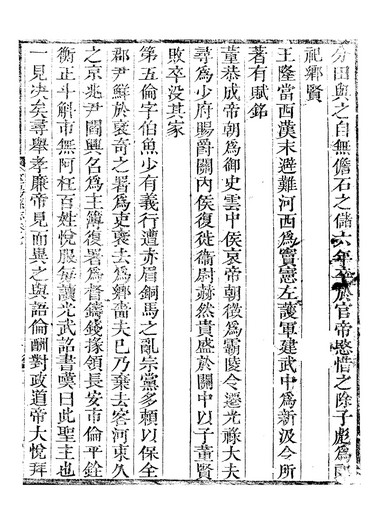 分田與之自無儋石之儲六年卒於官帝愍惜之除子彪為郎
祀鄉賢
王隆當西漢末避難河西為竇憲左護軍建武中為新汲令所
著有賦銘
董恭成帝朝為御史雲中侯哀帝朝徵為霸陵令遷光祿大夫
尋為少府賜爵關內侯復徙衞尉赫然貴盛於關中以子董賢
敗卒没其家
第五倫字伯魚少有義行遭赤眉銅馬之亂宗黨多頼以保全
郡尹鮮於襃奇之署為吏襃去為鄉嗇夫已乃棄去客河東久
之京兆尹閻興名為主簿復署為督鑄錢掾領長安市倫平銓
衡正斗斛市無阿枉百姓悅服每讀光武詔書歎曰此聖主也
一見决矣尋舉孝廉帝見而異之與語倫酬對政道帝大悅拜